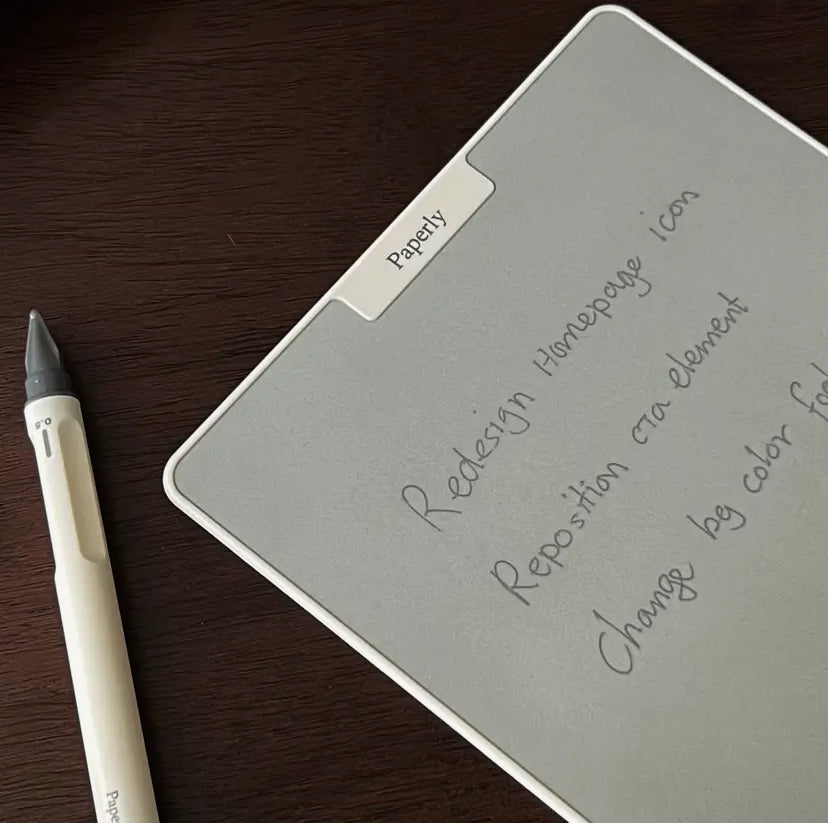 Paperly
Redesign Homepage icon
Reposition CTA element
Change bg color
0.5
Pape